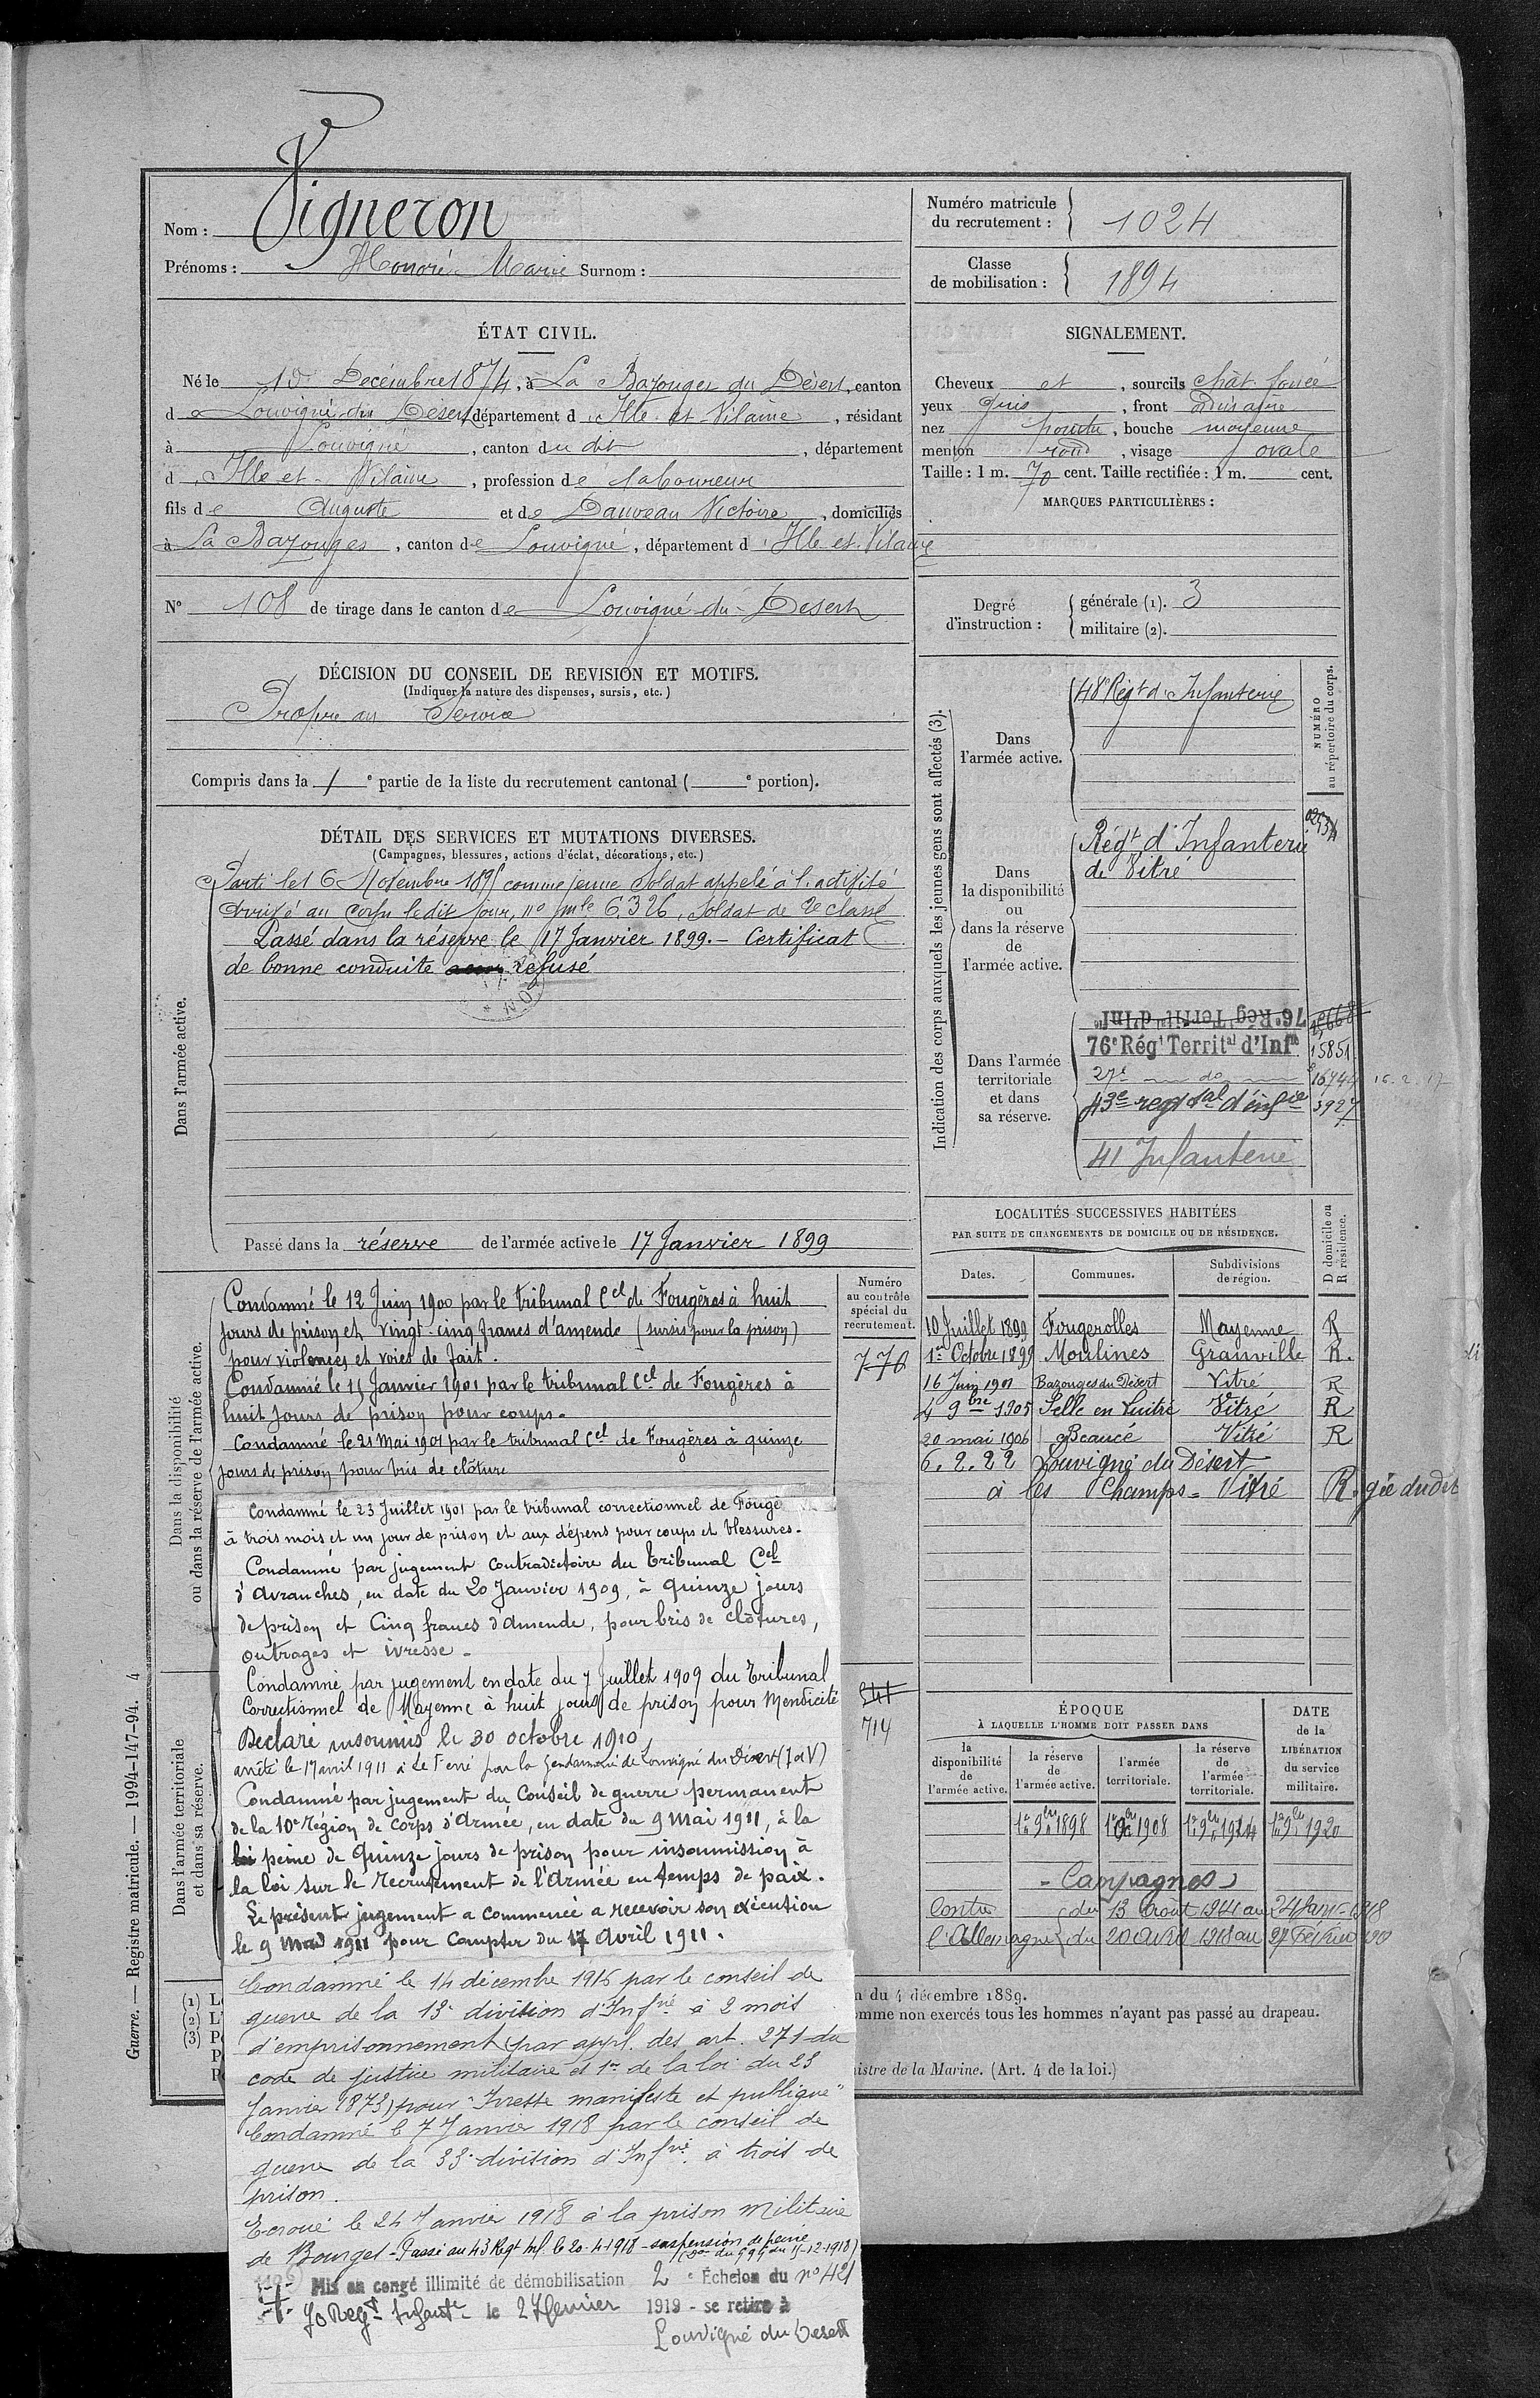 Nom : Vigneron
Prénoms : Honoré Marie Surnom :
Numéro matricule
du recrutement :
1024
Classe
de mobilisation :
1894
ÉTAT CIVIL.
Né le 10 Décembre 1874, à La Bazouges du Désert, canton
d e Louvigné du Désert, département d 'Ille et Vilaine, résidant
à Louvigné, canton du dit, département
d 'Ille et Vilaine, profession de laboureur
fils de Auguste et de Dauveau Victoire, domiciliés
à La Bazouges, canton de Louvigné, département d 'Ille et Vilaine
N° 108 de tirage dans le canton de Louvigné-du-Désert
SIGNALEMENT.
Cheveux et, sourcils chât. foncé
yeux gris, front ordinaire
nez pointu, bouche moyenne
menton rond, visage ovale
Taille : 1 m. 70 cent. Taille rectifiée : 1 m. cent.
MARQUES PARTICULIÈRES :
Degré
d'instruction :
générale (1). 3
militaire (2).
DÉCISION DU CONSEIL DE REVISION ET MOTIFS.
(Indiquer la nature des dispenses, sursis, etc.)
Propre au Service
Compris dans la 1e partie de la liste du recrutement cantonal ( e portion).
DÉTAIL DES SERVICES ET MUTATIONS DIVERSES.
(Campagnes, blessures, actions d'éclat, décorations, etc.)
Dans l'armée active.
Parti le 16 Novembre 1895 comme jeune Soldat appelé à l'activité
Arrivé au Corps le dit jour, no mle 6326, Soldat de 2e classe
Passé dans la réserve le 17 Janvier 1899. - Certificat
de bonne conduite refusé
Passé dans la réserve de l'armée active le 17 Janvier 1899
Indication des corps auxquels les jeunes gens sont affectés (3).
NUMÉRO
au répertoire du corps.
Dans
l'armée active.
48e Régt d'Infanterie
Dans
la disponibilité
ou
dans la réserve
de
l'armée active.
Régt d'Infanterie
de Vitré
Dans l'armée
territoriale
et dans
sa réserve.
76e Régt Territal d'Infie
76e Régt Territal d'Infie 15851
27e do 16744 16.2.17
43e regt tal d'infie 3927
41 Infanterie
LOCALITÉS SUCCESSIVES HABITÉES
PAR SUITE DE CHANGEMENTS DE DOMICILE OU DE RÉSIDENCE.
D domicile ou
R résidence.
Dates. Communes. Subdivisions
de région.
10 Juillet 1899 Fougerolles Mayenne R
1er Octobre 1899 Moulines Granville R.
16 Juin 1901 Bazouges du Désert Vitré R
4 9bre 1905 Selle en Luitré Vitré R
20 mai 1906 Beaucé Vitré R
6.2.22 Louvigné du Désert
à les Champs - Vitré R. gie dudit
Dans la disponibilité
ou dans la réserve de l'armée active.
Numéro
au contrôle
spécial du
recrutement.
770
Condamné le 12 Juin 1900 par le tribunal Cel de Fougères à huit
jours de prison et vingt-cinq francs d'amende (sursis pour la prison)
pour violences et voies de fait.
Condamné le 15 Janvier 1901 par le tribunal Cel de Fougères à
huit jours de prison pour coups.
Condamné le 21 Mai 1901 par le tribunal Cel de Fougères à quinze
jours de prison pour bris de clôture
Condamné le 23 Juillet 1901 par le tribunal correctionnel de Fougè
à trois mois et un jour de prison et aux dépens pour coups et blessures.
Condamné par jugement contradictoire du Tribunal Cel
d'Avranches, en date du 20 Janvier 1909, à quinze jours
de prison et Cinq francs d'amende, pour bris de clôtures,
outrages et ivresse.
Condamné par jugement en date du 7 Juillet 1909 du Tribunal
Correctionnel de Mayenne à huit jours de prison pour Mendicité
Déclaré insoumis le 30 octobre 1910,
arrêté le 17 avril 1911 à Le Ferré par la gendarmerie de Louvigné du Désert (I et V)
Condamné par jugement du Conseil de guerre permanent
de la 10e Région de Corps d'Armée, en date du 9 Mai 1911, à la
peine de Quinze jours de prison pour insoumission à
la loi sur le recrutement de l'Armée en temps de paix.
Le présent jugement a commencé a recevoir son exécution
le 9 Mai 1911 pour compter du 17 Avril 1911.
Condamné le 14 décembre 1916 par le conseil de
guerre de la 13e division d'Infrie à 2 mois
d'emprisonnement (par appl. des art. 271 du
code de justice militaire et 1er de la loi du 23
Janvier 1873) pour "Ivresse manifeste et publique"
Condamné le 7 Janvier 1918 par le conseil de
guerre de la 33e division d'Infrie à trois de
prison.
Ecroué le 24 Janvier 1918 à la prison militaire
de Bourges - Passé au 43 Regt Inf. le 20-4-1918 - suspension de peine
Mis en congé illimité de démobilisation 2e Échelon du no 421
70 Regt Infante le 27 février 1919 - se retire à
Louvigné du Desert
Dans l'armée territoriale
et dans sa réserve.
341
714
ÉPOQUE
À LAQUELLE L'HOMME DOIT PASSER DANS
DATE
de la
LIBÉRATION
du service
militaire.
la
disponibilité
de
l'armée active.
la réserve
de
l'armée active.
l'armée
territoriale.
la réserve
de
l'armée
territoriale.
1er 9bre 1898 1er 8bre 1908 1er 9bre 1914 1er 8bre 1920
- Campagnes -
Contre du 13 Août 1914 au 24 Janv. 1918
l'Allemagne du 20 Avril 1918 au 27 Février 1919
(1) L
(2) L'
(3) P
P
P
n du 4 décembre 1889.
omme non exercés tous les hommes n'ayant pas passé au drapeau.
nistre de la Marine. (Art. 4 de la loi.)
Guerre. — Registre matricule. — 1994-147-94. 4